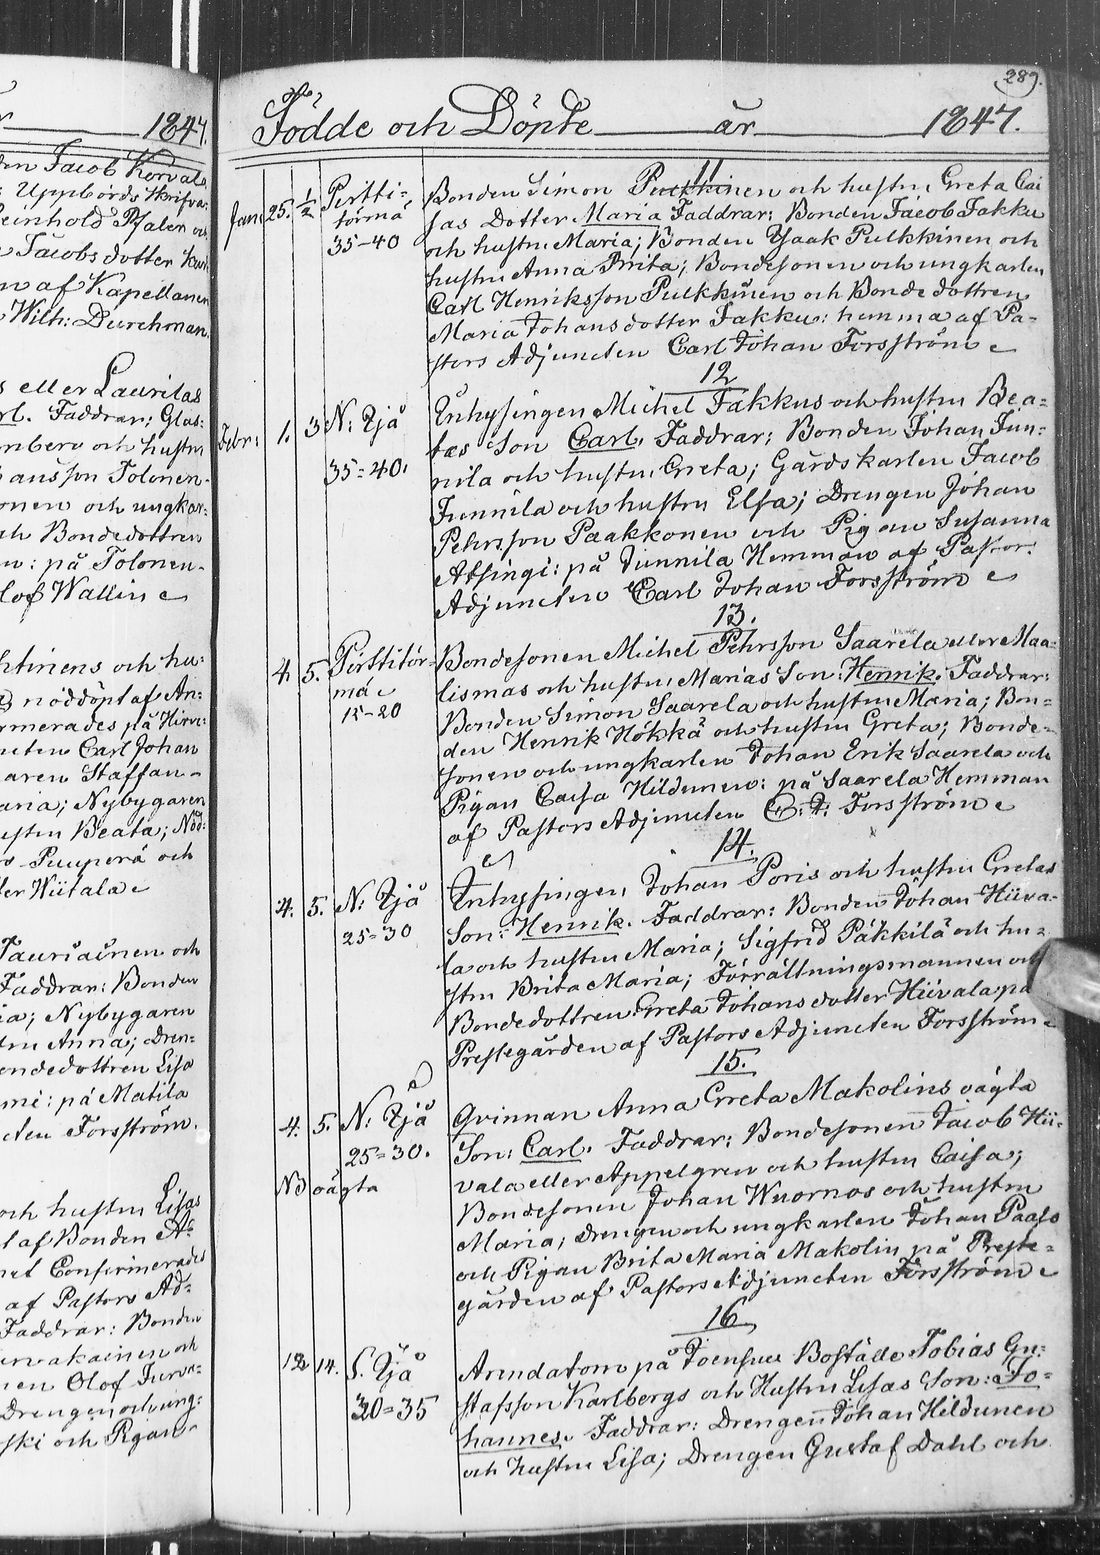 1847.
den Jacob Korval
Uppbörds Skrifva-
Reinhold Pfaler
Jacobs dotter
n af Kapellanen
Wilh: Durchman.
s eller Laurilas
Carl. Faddrar: Glas-
och hustru
ansson Tolonen
onen och ungkar-
ch Bondedottren
n: på Tolonen
lof Wallin
och hu-
nöddöpt af An-
armerades på
Carl Johan
aren Staffan
aria; Nybygaren
ustru Beata; Nöd-
Puuperä och
Hiitala
Tauriainen och
Faddrar: Bonden
ia; Nybygaren
tru Anna; Dren-
ondedottren Lisa
mi: på Matila
cten Forsström.
och hustru Lisas
af Bonden
Confirmerades
af Pastors Ad-
Faddrar: Bonden
ervakainen och
nen Olof Turva-
Drengen och ung-
ski och Pigan
289.
Födde och Döpte år 1847.
11
Janr: 25. 1/2 Pertti-
törmä
35-40
Bonden Simon Pulkkinen och hustru Greta Cai
sas Dotter Maria Faddrar: Bonden Jacob Jakku
och hustru Maria; Bonden Ysaak Pulkkinen och
hustru Anna Brita; Bondesonen och ungkarlen
Carl Henriksson Pulkkinen och Bonde dottren
Maria Johansdotter Jakku: hemma af Pa-
stors Adjuncten Carl Johan Forsström
12
Febr: 1. 3 N: Ijå
35=40.
Inhysingen Michel Jakkus och hustru Bea-
tas Son Carl. Faddrar: Bonden Johan Jun-
nila och hustru Greta; Gårdskarlen Jacob
Junnila och hustru Elsa; Drengen Johan
Pehrsson Paakkonen och Pigan Susanna
Atsingi: på Junnila Hemman af Pastor.
Adjuncten Carl Johan Forsström
13.
4. 5. Perttitör-
mä
15-20
Bondesonen Michel Pehrsson Saarela eller Maa-
lismas och hustru Marias Son: Henrik. Faddrar:
Bonden Simon Saarela och hustru Maria; Bon-
den Henrik Hökkä och hustru Greta; Bonde-
sonen och ungkarlen Johan Erik Saarela och
Pigan Caisa Hildunen: på Saarela Hemman
af Pastors Adjuncten C: J: Forsström
14.
4. 5. N: Ijå
25=30
Inhysingen Johan Poris och hustru Gretas
Son: Henrik. Faddrar: Bonden Johan Hiiva-
la och hustru Maria; Sigfrid Päkkilä och hu-
stru Brita Maria; Förrättningsmannen och
Bondedottren Greta Johansdotter Hiivala på
Prestegården af Pastors Adjuncten Forsström
15.
4. 5. N: Ijå
25=30.
NB oägta
Qvinnan Anna Greta Makolins oägta
Son: Carl. Faddrar: Bondesonen Jacob Hii-
vala eller Appelgren och hustru Caisa;
Bondesonen Johan Wuornos och hustru
Maria; drengen och ungkarlen Johan Paaso
och Pigan Brita Maria Makolin på Preste-
gården af Pastors Adjuncten Forsström
16
12 14. S. Ijå
30=35
Arrendatorn på Joensuu Boställe Tobias Gu-
stafsson Karlbergs och Hustru Lisas Son: Jo-
hannes. Faddrar: Drengen Johan Hildunen
och Hustru Lisa; Drengen Gustaf Dahl och